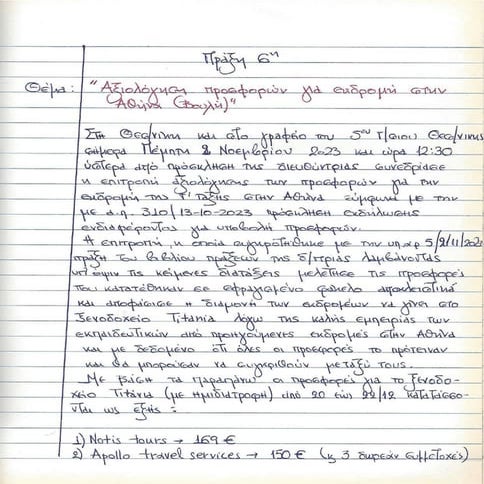 Πράξη 6η
Θέμα: "Αξιολόγηση προσφορών για εκδρομή στην
Αθήνα (Βουλή)"
Στη Θεσ/νίκη και στο γραφείο του 5ου Γ/σίου Θεσ/νίκης
σήμερα Πέμπτη 2 Νοεμβρίου 2023 και ώρα 12:30
ύστερα από πρόσκληση της διευθύντριας συνεδρίασε
η επιτροπή αξιολόγησης των προσφορών για την
εκδρομή της Γ' τάξης στην Αθήνα σύμφωνα με την
με α.π. 310/13-10-2023 πρόσκληση εκδήλωσης
ενδιαφέροντος για υποβολή προσφορών.
Η επιτροπή, η οποία συγκροτήθηκε με την υπ.αρ 5/2/11/202
πράξη του βιβλίου πράξεων της δ/ντριας λαμβάνοντας
υπ'όψιν τις κείμενες διατάξεις μελέτησε τις προσφορές
που κατατέθηκαν σε σφραγισμένο φάκελο αποκλειστικά
και αποφάσισε η διαμονή των εκδρομέων να γίνει στο
Ξενοδοχείο Titania λόγω της καλής εμπειρίας των
εκπαιδευτικών από προηγούμενες εκδρομές στην Αθήνα
και με δεδομένο ότι όλες οι προσφορές το πρότειναν
και θα μπορούσαν να συγκριθούν μεταξύ τους.
Με βάση τα παραπάνω οι προσφορές για το ξενοδο-
χείο Titania (με ημιδιατροφή) από 20 έως 22/12 κατατάσσο-
νται ως εξής:
1) Notis tours → 169 €
2) Apollo travel services → 150 € (κ 3 δωρεάν συμμετοχές)